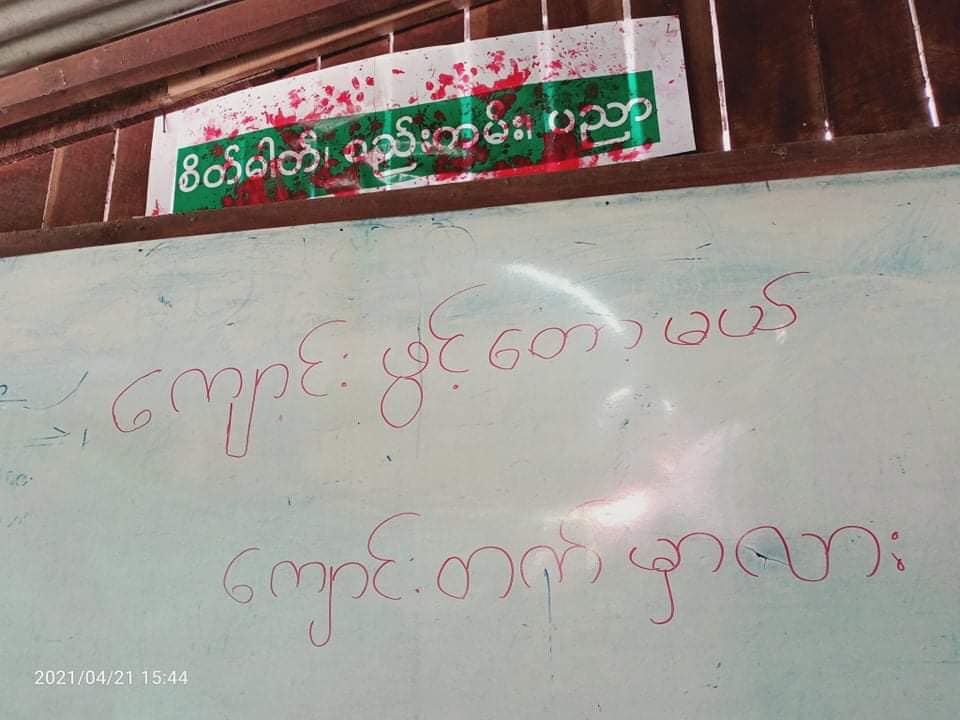 စိတ်ဓါတ်၊ စည်းကမ်း၊ ပညာ
ကျောင်း ဖွင့်တော့မယ်
ကျောင်းတက်မှာလား
2021/04/21 15:44